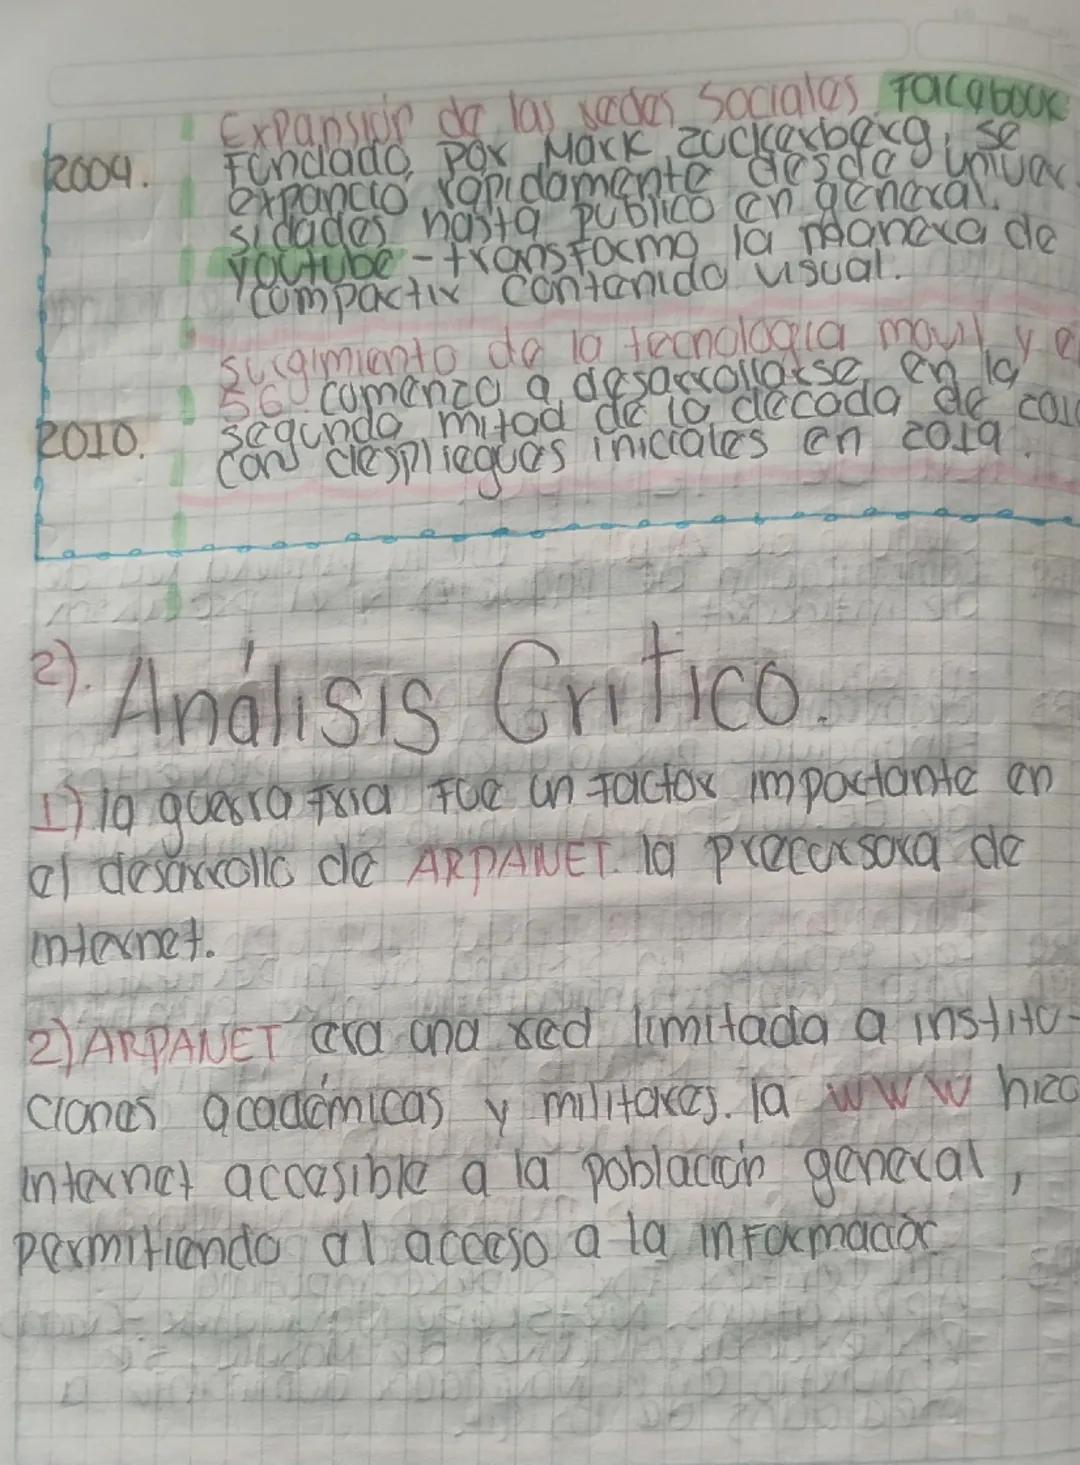 Expansión de las redes Sociales Facebook
2004.
Fundado, por Mark Zuckerberg, se
expancio rapidamente desde univer
sidades hasta publico en general.
youtube - transformo la manera de
compactir contenido visual.
surgimiento de la tecnologia movil y e
5G comenzo a desarrollarse en la
2010.
segunda mitad de la decada de 201
con despliegues iniciales en 2019.
2). Análisis Critico.
1) la guerra fria fue un factor importante en
el desarrollo de ARPANET. la precursora de
internet.
2) ARPANET era una red limitada a institu-
ciones académicas y militares. la WWW hizo
internet accesible a la población general,
permitiendo al acceso a la información